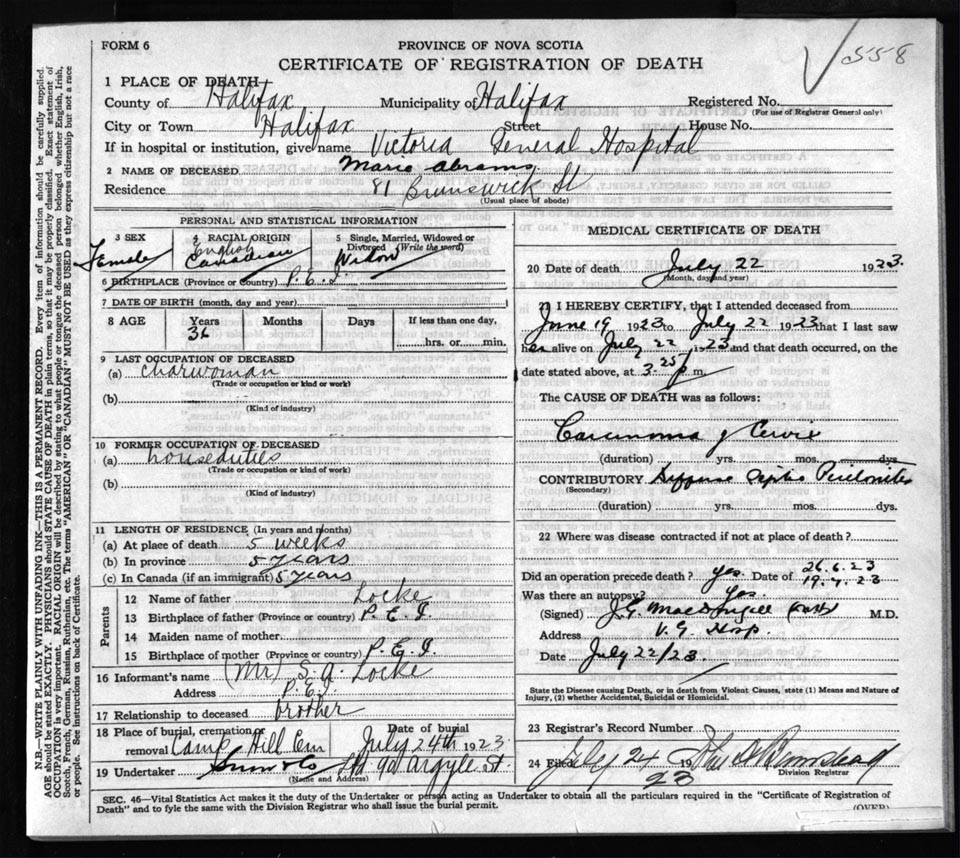 FORM 6
PROVINCE OF NOVA SCOTIA
558
CERTIFICATE OF REGISTRATION OF DEATH
1 PLACE OF DEATH
County of Halifax Municipality of Halifax Registered No.
(For use of Registrar General only)
City or Town Halifax Street House No.
If in hospital or institution, give name Victoria General Hospital
2 NAME OF DECEASED Marie Abrams
Residence 81 Brunswick St
(Usual place of abode)
PERSONAL AND STATISTICAL INFORMATION
3 SEX Female
4 RACIAL ORIGIN English Canadian
5 Single, Married, Widowed or Divorced (Write the word) Widow
6 BIRTHPLACE (Province or Country) P.E.I.
7 DATE OF BIRTH (month, day and year)
8 AGE Years 36 Months Days If less than one day, hrs. or min.
9 LAST OCCUPATION OF DECEASED
(a) Charwoman
(Trade or occupation or kind or work)
(b)
(Kind of industry)
10 FORMER OCCUPATION OF DECEASED
(a) houseduties
(Trade or occupation or kind of work)
(b)
(Kind of industry)
11 LENGTH OF RESIDENCE (In years and months)
(a) At place of death 5 weeks
(b) In province 5 years
(c) In Canada (if an immigrant) 5 years
Parents
12 Name of father Locke
13 Birthplace of father (Province or country) P.E.I.
14 Maiden name of mother
15 Birthplace of mother (Province or country) P.E.I.
16 Informant's name (Mr) S.A. Locke
Address P.E.I.
17 Relationship to deceased brother
18 Place of burial, cremation or removal Camp Hill Cem Date of burial July 24th 1923
19 Undertaker Snow & Co Ltd 90 Argyle St.
(Name and Address)
MEDICAL CERTIFICATE OF DEATH
20 Date of death July 22 1923
(Month, day and year)
21 I HEREBY CERTIFY, that I attended deceased from
June 19 1923 to July 22 1923 that I last saw
her alive on July 22 1923 and that death occurred, on the
date stated above, at 3.25 p.m.
The CAUSE OF DEATH was as follows:
Carcinoma of Cervix
(duration) yrs. mos. dys
CONTRIBUTORY Diffuse Septic Peritonitis
(Secondary)
(duration) yrs. mos. dys.
22 Where was disease contracted if not at place of death?
Did an operation precede death? yes. Date of 26.6.23
19.7.23
Was there an autopsy? Yes.
(Signed) J.G. MacDougall M.D.
Address V.G. Hosp.
Date July 22/23.
State the Disease causing Death, or in death from Violent Causes, state (1) Means and Nature of
Injury, (2) whether Accidental, Suicidal or Homicidal.
23 Registrar's Record Number
24 Filed July 24 1923
Division Registrar
SEC. 46—Vital Statistics Act makes it the duty of the Undertaker or person acting as Undertaker to obtain all the particulars required in the "Certificate of Registration of
Death" and to fyle the same with the Division Registrar who shall issue the burial permit.
(OVER)
N.B.—WRITE PLAINLY WITH UNFADING INK—THIS IS A PERMANENT RECORD. Every item of information should be carefully supplied.
AGE should be stated EXACTLY. PHYSICIANS should STATE CAUSE OF DEATH in plain terms, so that it may be properly classified. Exact statement of
OCCUPATION is very important. RACIAL ORIGIN will be described by stating to what people or tongue the deceased person belonged whether English, Irish,
Scotch, French, German, Russian, Ruthenian, etc. The terms "AMERICAN" OR "CANADIAN" MUST NOT BE USED as they express citizenship but not a race
or people. See instructions on back of Certificate.